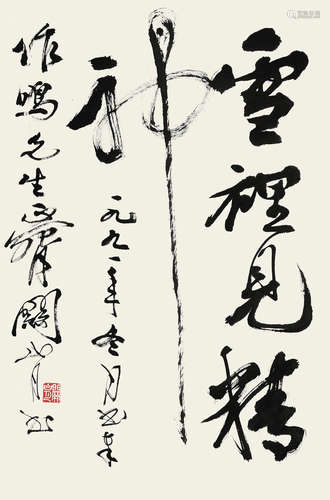 雪裡見精
神
一九九一年冬月书奉
作鳴先生 關山月